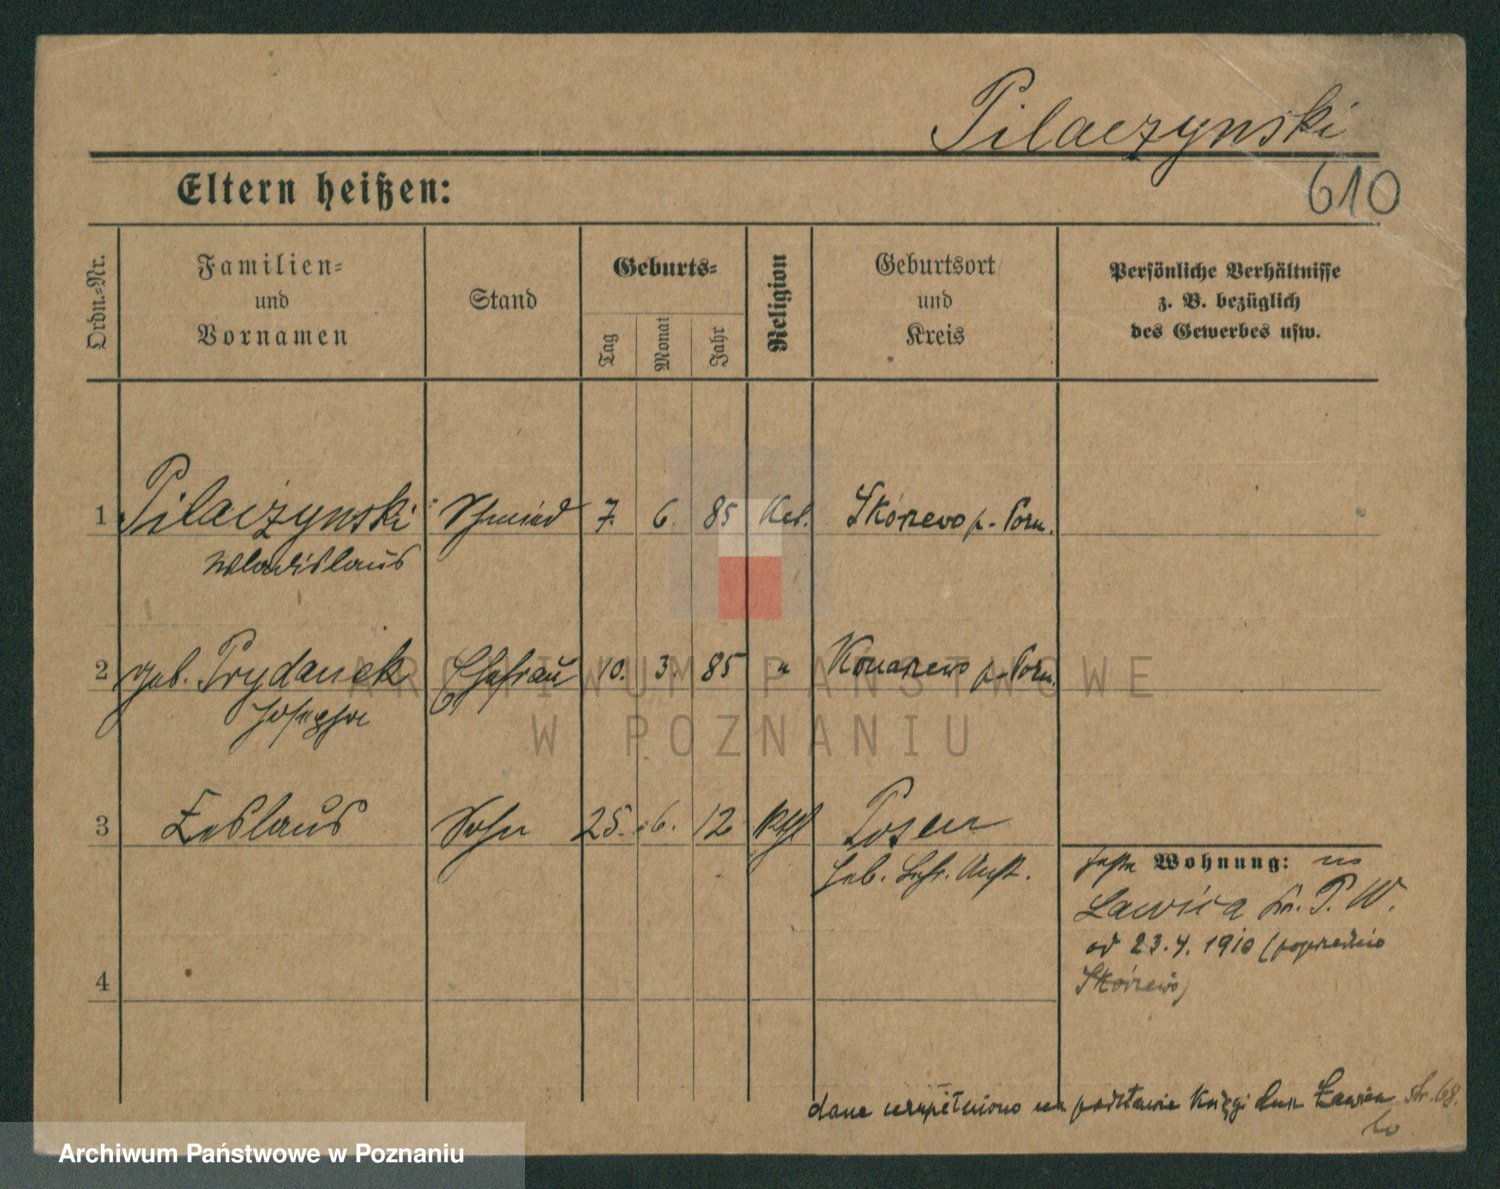 Pilaczynski
610
Eltern heißen:
Ordn.-Nr.
Familien-
und
Vornamen
Stand
Geburts-
Tag
Monat
Jahr
Religion
Geburtsort
und
Kreis
Persönliche Verhältnisse
z. B. bezüglich
des Gewerbes usw.
1 Pilaczynski Schmied 7. 6. 85 Kat. Skórzewo p. Pozn.
Wladislaus
2 geb. Prydanek Ehefrau 10. 3. 85 " Konarzewo p. Pozn.
Josepha
3 Zeslaus Sohn 25. 6. 12 Kth Posen
Heb. Lehr. Anst.
Wohnung: w
Lawica kr. P. W.
od 23.4.1910 (poprzednio
Skórzewo)
4
dane uzupełniono na podstawie Księgi Lawica str. 68.
ARCHIWUM PAŃSTWOWE
W POZNANIU
Archiwum Państwowe w Poznaniu